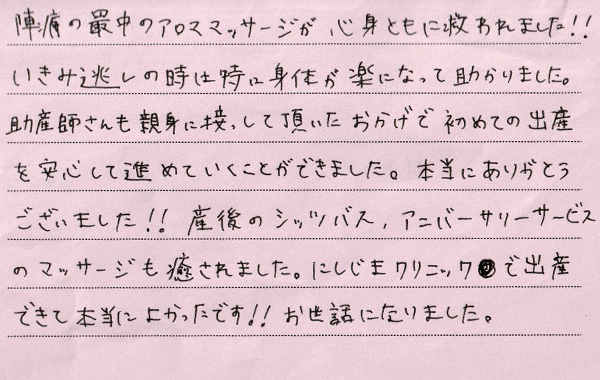 陣痛の最中のアロママッサージが、心身ともに救われました!!
いきみ逃しの時は特に身体が楽になって助かりました。
助産師さんも親身に接っして頂いたおかげで初めての出産
を安心して進めていくことができました。本当にありがとう
ございました!!産後のシッツバス,アニバーサリーサービス
のマッサージも癒されました。にしじまクリニックで出産
できて本当によかったです!!お世話になりました。